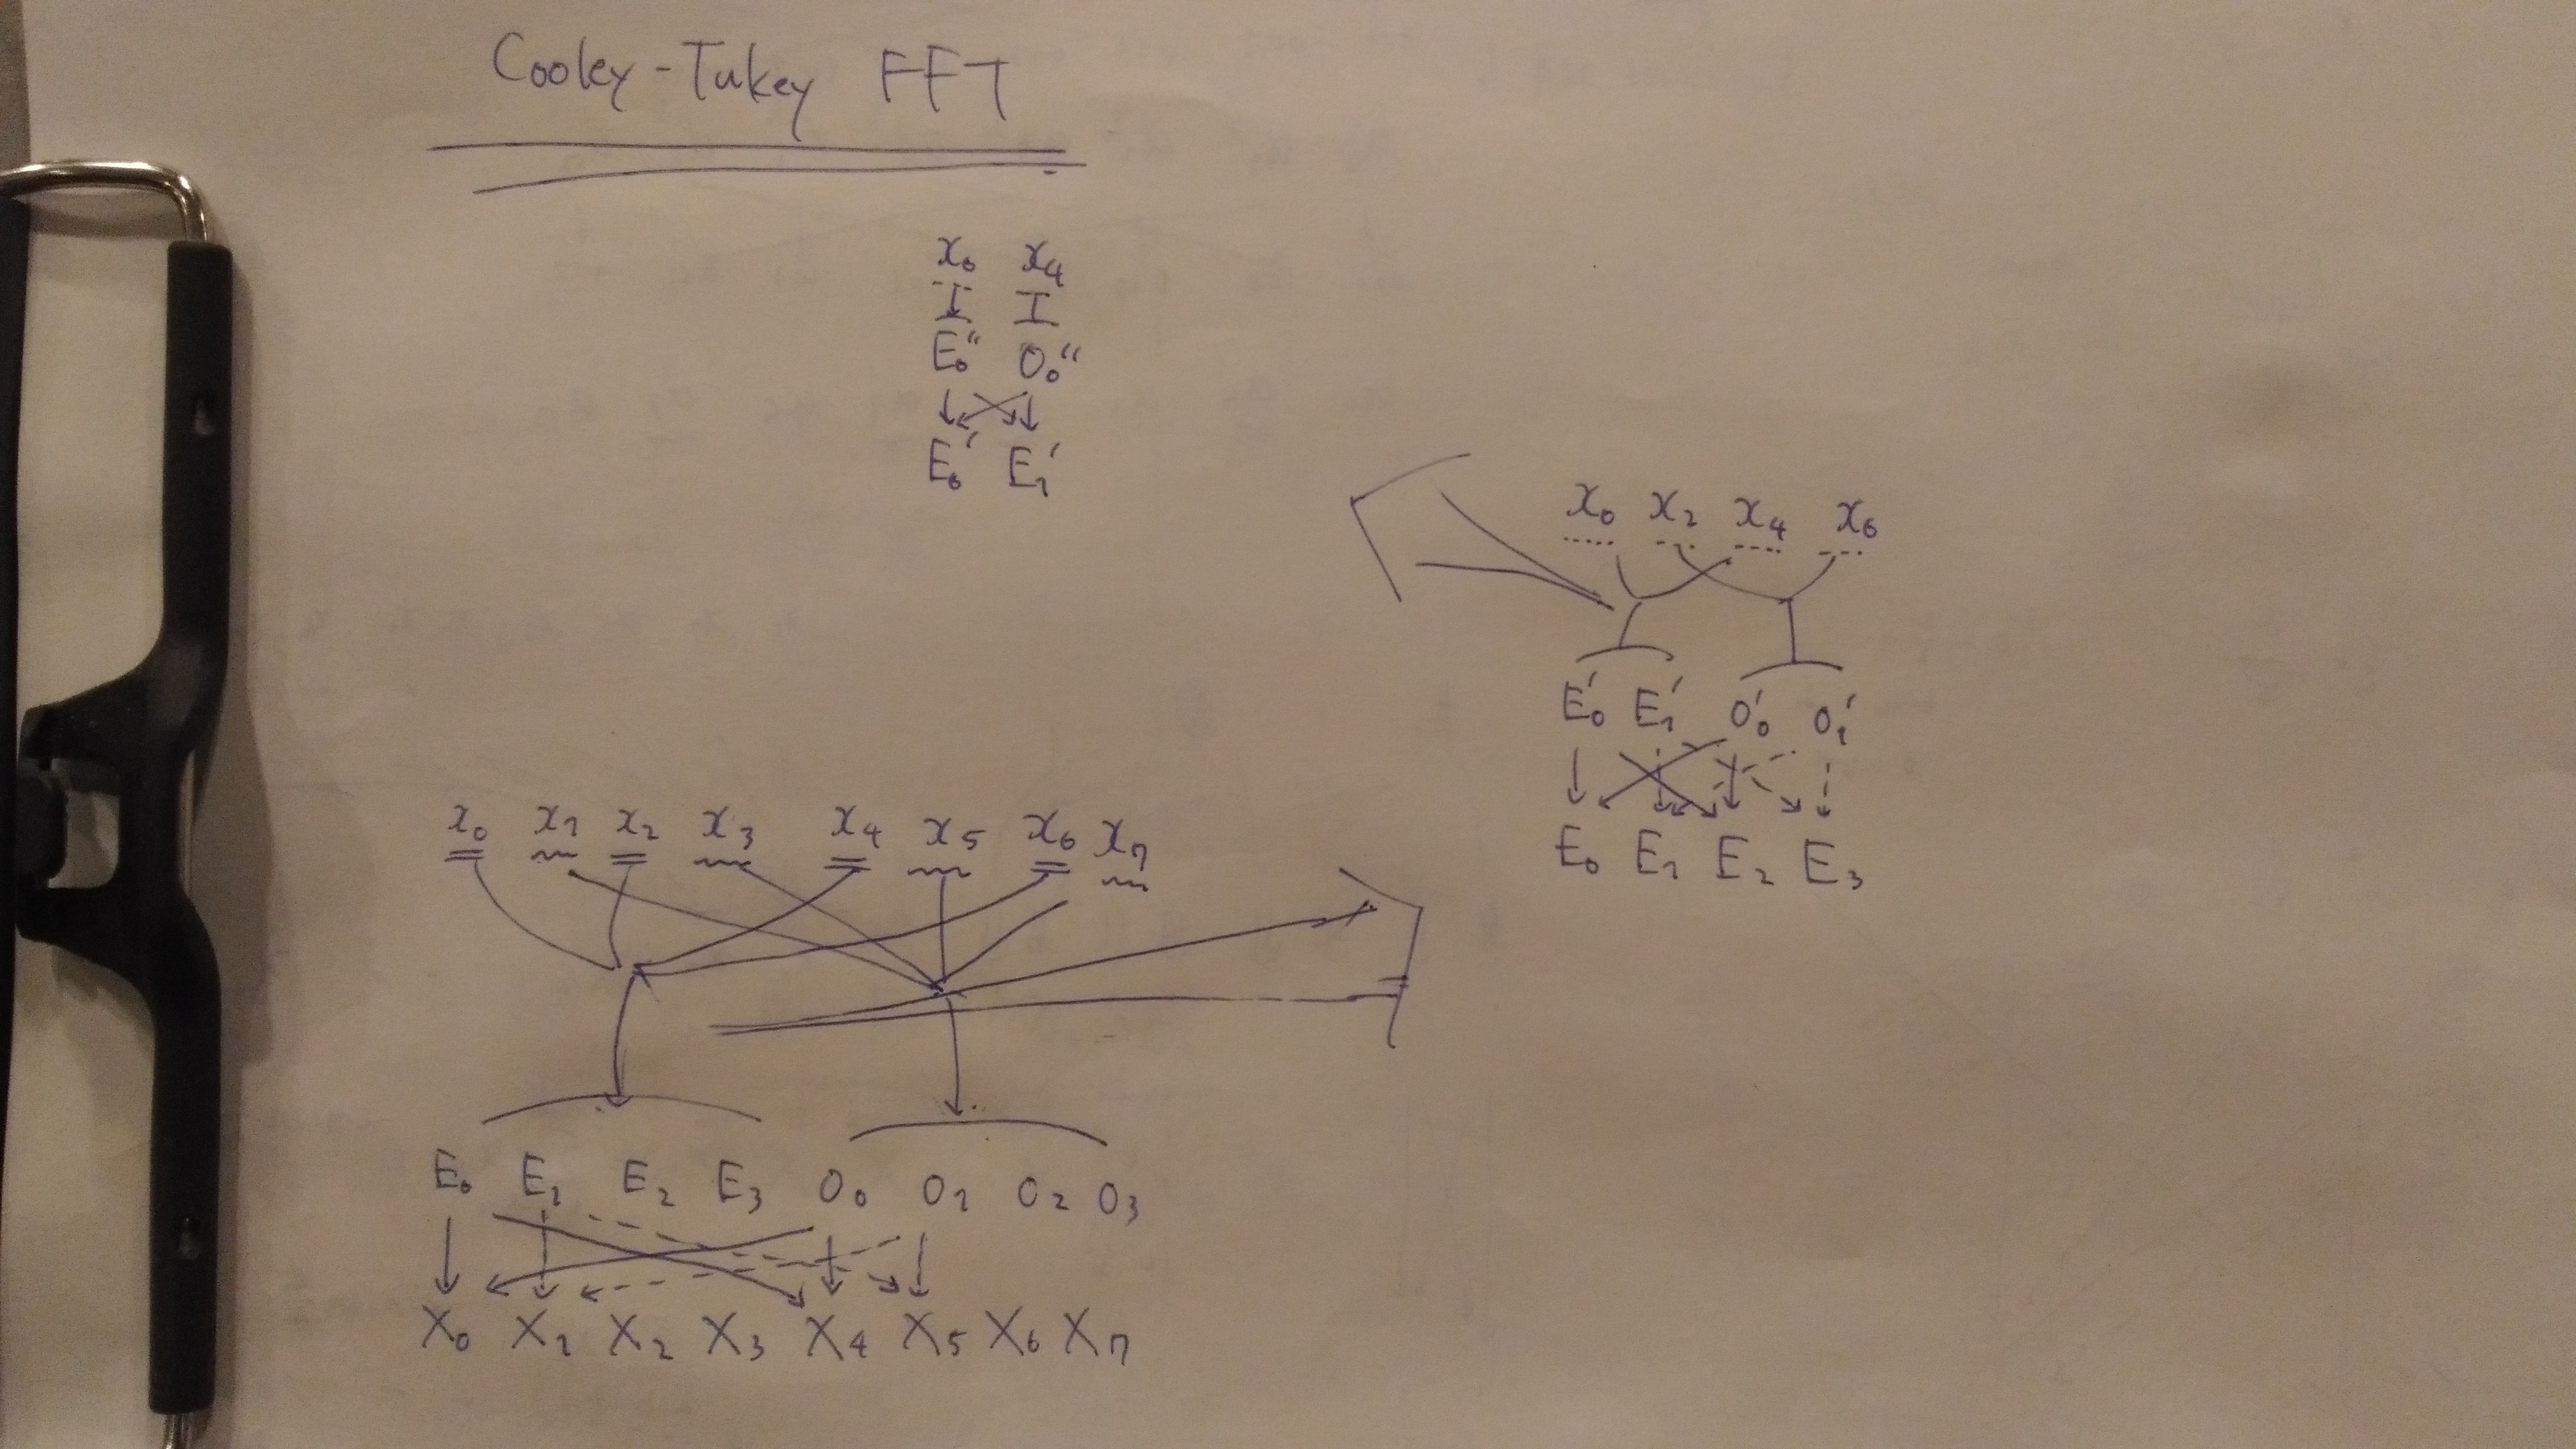 Cooley-Tukey FFT
x₀ x₄
E₀″ O₀″
E₀′ E₁′
x₀ x₂ x₄ x₆
E₀′ E₁′ O₀′ O₁′
E₀ E₁ E₂ E₃
x₀ x₁ x₂ x₃ x₄ x₅ x₆ x₇
E₀ E₁ E₂ E₃ O₀ O₁ O₂ O₃
X₀ X₁ X₂ X₃ X₄ X₅ X₆ X₇